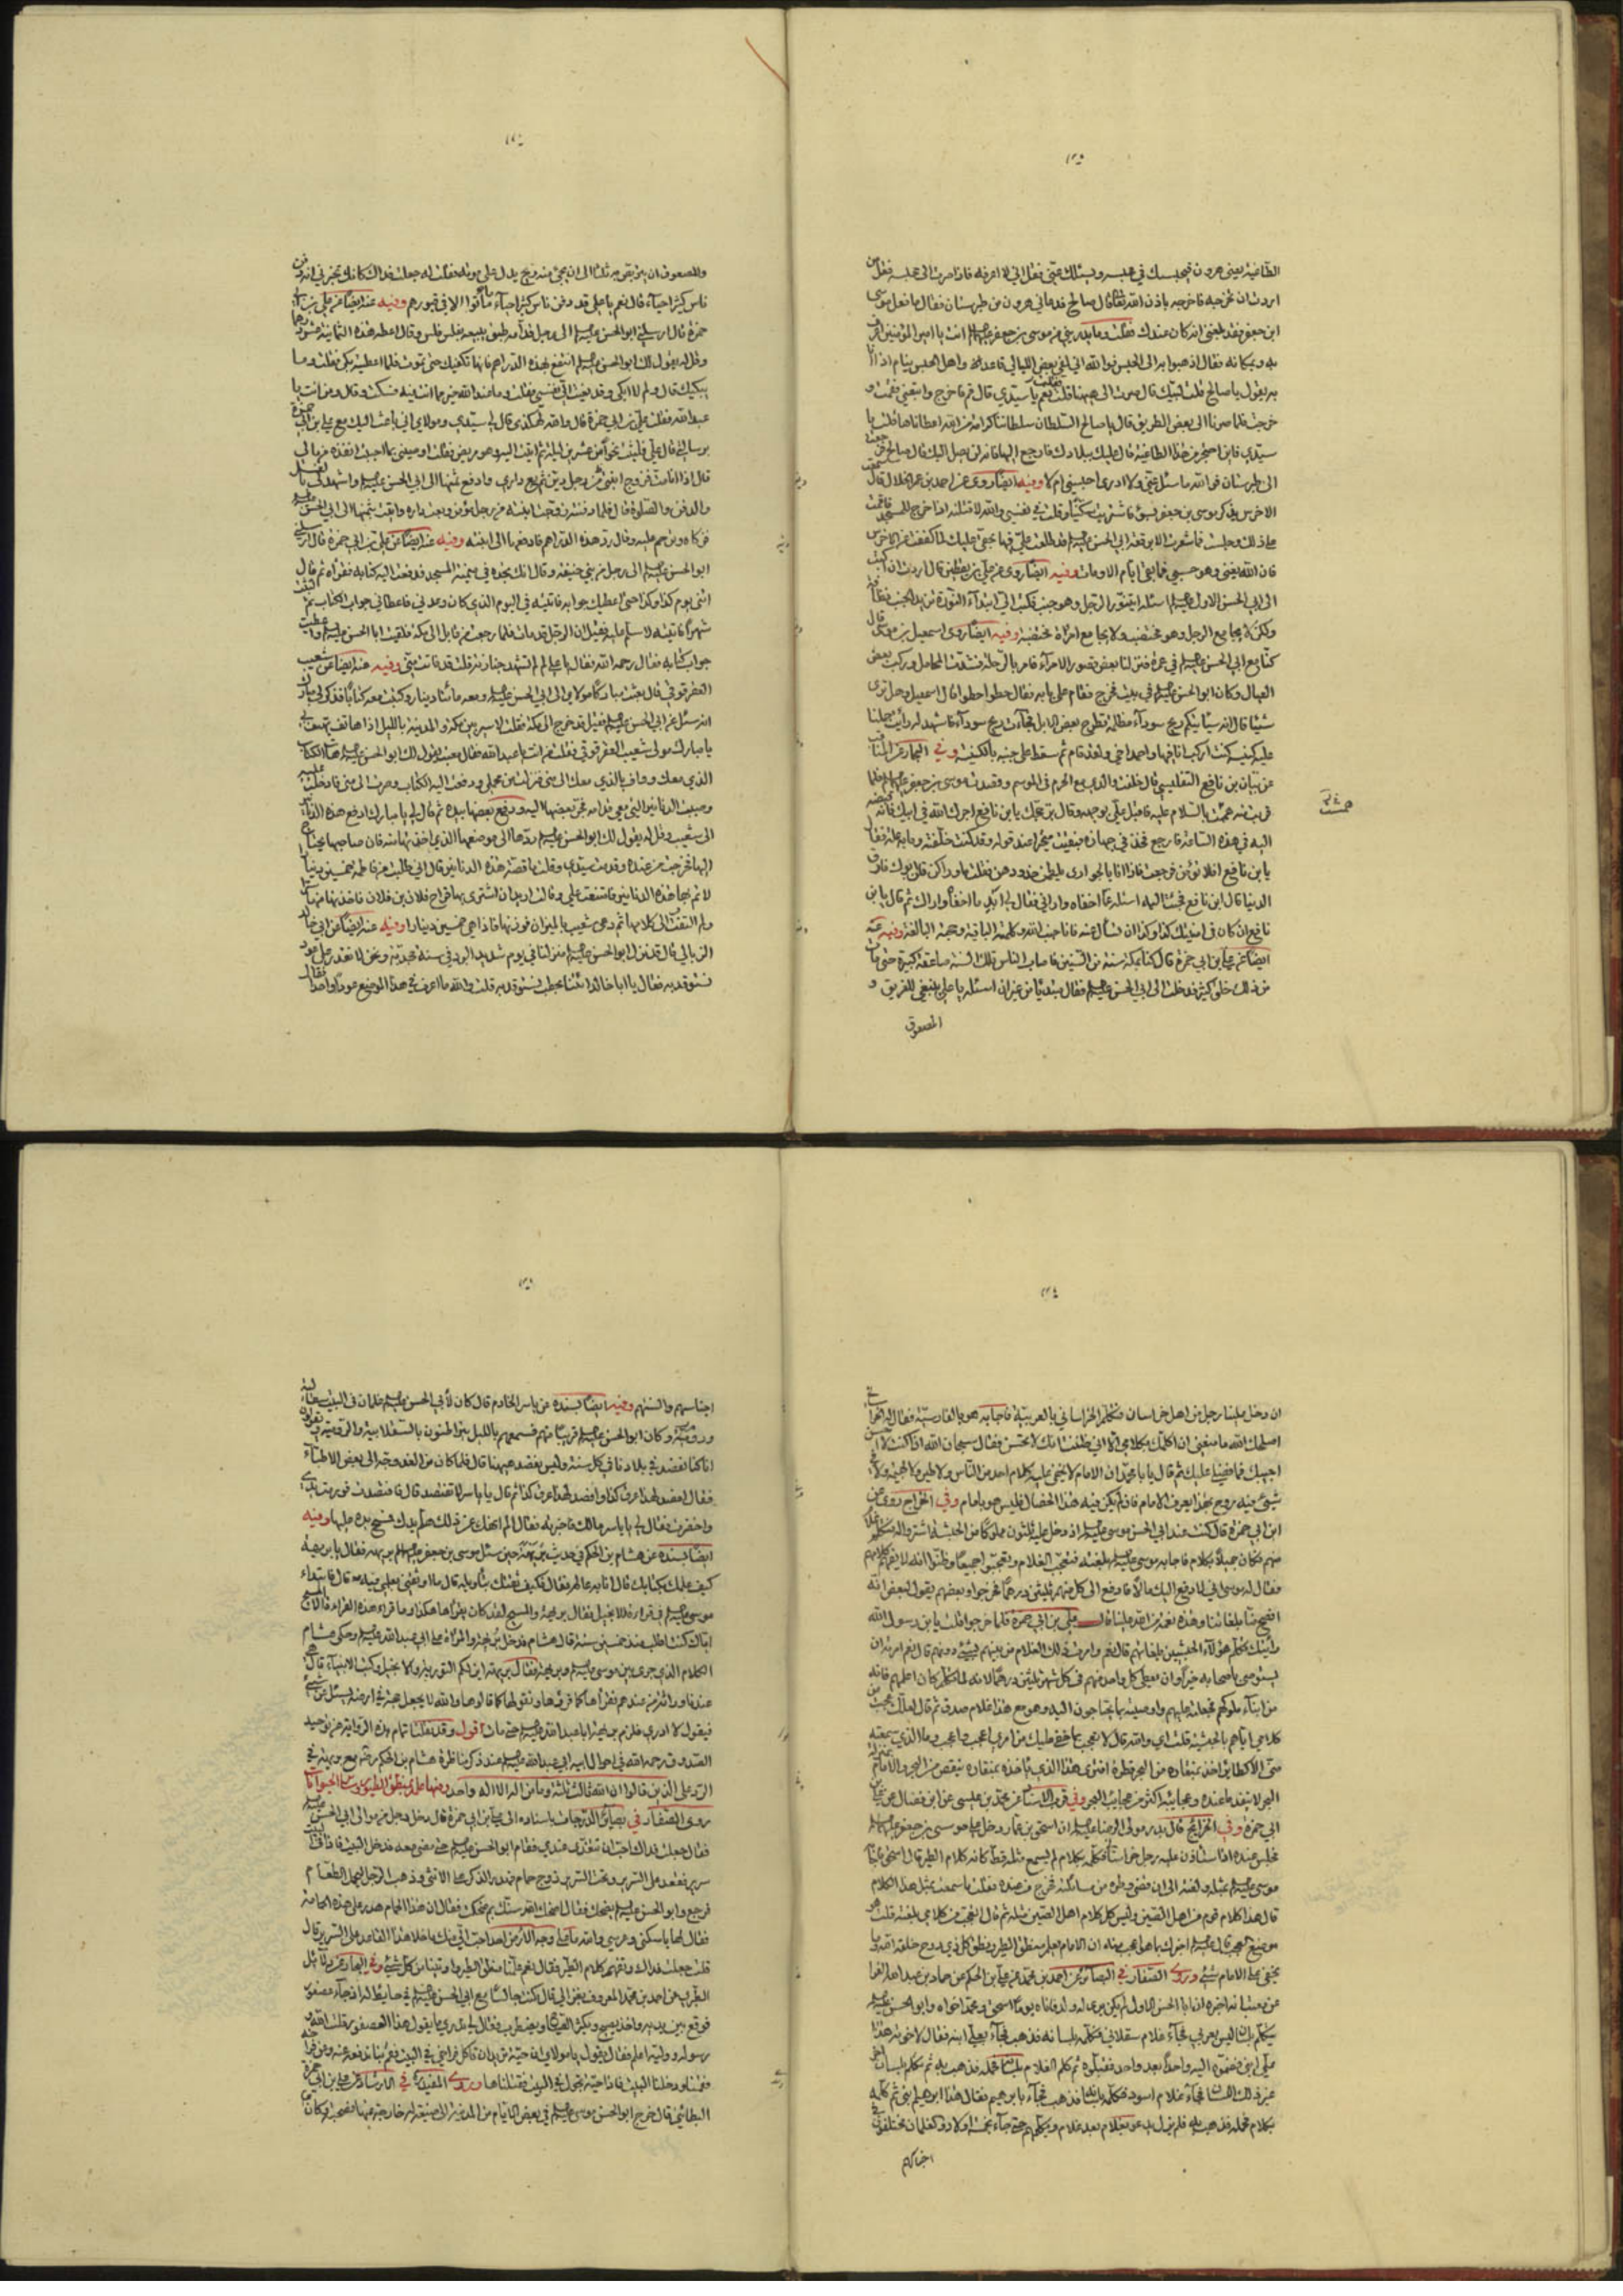 الطاغية يعنى هرون فيحبسك في محبسه ويسئلك عنّى فقل انّي لا اعرفه فاذا صرت الى محبسه فقل من
اردت ان تخرجه فاخرجه باذن الله تعالى قال صالح فدعاني هرون من طبرستان فقال ما فعل موسى
ابن جعفر فقد بلغنى انه كان عندك فقلت وما يدرينى من موسى بن جعفر انت يا امير المؤمنين اعرف
به وبمكانه فقال اذهبوا به الى الحبس فوالله انّي لفي بعض الليالي قاعد واهل الحبس نيام اذا انا
به يقول يا صالح قلت لبيك قال صرت الى ههنا فقلت نعم يا سيّدي قال قم فاخرج واتبعنى فقمت و
خرجت فلما صرنا الى بعض الطريق قال يا صالح السلطان سلطاننا كرامة من الله اعطاناها قلت يا
سيّدي فاين احتجز من هذا الطاغية قال عليك ببلادك فارجع اليها فانه لن يصل اليك قال صالح فرجعت
الى طبرستان فوالله ما سئل عنّي ولا ادرى احبسنى ام لا وفيه ايضا روى عن احمد بن عمر الخلال قال سمعت
الاخرس يذكر موسى بن جعفر بسوء فاشتريت سكّينا وقلت في نفسى والله لاقتلنه اذا خرج للمسجد فاقمت
على ذلك وجلست فما شعرت الا برقعة ابي الحسن قد طلعت علىّ فيها بحقّي عليك لما كففت عن الاخرس
فان الله يغنى وهو حسبى فما بقى ايام الا ومات وفيه ايضا روى عن علي بن يقطين قال اردت ان اكتب
الى ابي الحسن الاول اسئله ايتنوّر الرجل وهو جنب فكتب الىّ ابتداء النورة تزيد الجنب نظافة
ولكن لا يجامع الرجل وهو مختضب ولا يجامع امرأة مختضبة وفيه ايضا روى اسمعيل بن موسى قال
كنّا مع ابي الحسن في عمرة فنزلنا بعض قصور الامراء فامر بالرحلة فشدّت المحامل وركب بعض
العيال وكان ابو الحسن في بيت فخرج فقام على بابه فقال حطوا حطوا قال اسمعيل وهل ترى
شيئا قال انه سياتيكم ريح سوداء مظلمة تطرح بعض الابل فجاءت ريح سوداء فاشهد لرأيت جملنا
عليه كنيسة كنت اركب انا فيها واحمد اخي ولقد قام ثم سقط على جنبه بالكنيسة وفي البحار عن المناقب
عن بيان بن نافع التفليسي قال خلفت والدى مع الحرم في الموسم وقصدت موسى بن جعفر فلما
قربت منه هممت بالسلام عليه فاقبل علىّ بوجهه وقال برّ حجك يا بن نافع اجرك الله في ابيك فانه قبضه
اليه في هذه الساعة فارجع فخذ في جهازه فبقيت متحيرا عند قوله وقد كنت خلّفته وما به علة فقال
يا بن نافع افلا تؤمن فرجعت فاذا انا بالجوارى يلطمن خدودهن فقلت ما وراكن قلن ابوك فارق
الدنيا قال ابن نافع فجئت اليه اسئله عمّا اخفاه واراني فقال لي ابد ما اخفاه واراك ثم قال يا بن
نافع ان كان في امنيتك كذا وكذا ان تسأل عنه فانا جنب الله وكلمته الباقية وحجته البالغة وفيه عنه
ايضا عن علي بن ابي حمزة قال كنا بمكة سنة من السنين فاصاب الناس تلك السنة صاعقة كبيرة حتى مات
من ذلك خلق كثير فدخلت الى ابي الحسن فقال مبتديا من غير ان اسئله يا علي ينبغي للغريق و
المصعوق
والمصعوق ان يتربّص به ثلثا الى ان يجئ منه ريح يدل على موته فقلت له جعلت فداك كانك تخبرني انه دفن
ناس كثير احياء قال نعم يا علي قد دفن ناس كثير احياء ما ماتوا الا في قبورهم وفيه عنه ايضا عن علي بن ابي
حمزة قال ارسلنى ابو الحسن الى رجل قدامه طبق يبيع بفلس فلس وقال اعطه هذه الثمانية عشر درهما
وقل له يقول لك ابو الحسن انتفع بهذه الدراهم فانها تكفيك حتى تموت فلما اعطيته بكى فقلت وما
يبكيك قال ولم لا ابكى وقد نعيت الىّ نفسى فقلت وما عند الله خير مما انت فيه فسكت وقال ومن انت يا
عبد الله فقلت علي بن ابي حمزة قال والله لهكذا قال لي سيّدي ومولاي اني باعث اليك مع علي بن ابي حمزة
برسالتى قال علي فلبثت نحوا من عشرين ليلة ثم اتيت اليه وهو مريض فقلت اوصنى بما احببت انفذه من مالي
قال اذا انا مت فزوج ابنتى من رجل ديّن ثم بع داري وادفع ثمنها الى ابي الحسن واشهد لى بالغسل
والدفن والصلوة قال فلما دفنته زوجت ابنته من رجل مؤمن وبعت داره واتيت بثمنها الى ابي الحسن
فزكاه وترحم عليه وقال ردّ هذه الدراهم فادفعها الى ابنته وفيه عنه ايضا عن علي بن ابي حمزة قال ارسلنى
ابو الحسن الى رجل من بني حنيفة وقال انك تجده في ميمنة المسجد فدفعت اليه كتابه فقرأه ثم قال
ائتنى يوم كذا وكذا حتى اعطيك جوابه فاتيته في اليوم الذي كان وعدني فاعطاني جواب الكتاب ثم لبثت
شهرا فاتيته لاسلم عليه فقيل ان الرجل قد مات فلما رجعت من قابل الى مكة فلقيت ابا الحسن واعطيت
جواب كتابه فقال رحمه الله فقال يا علي لم لم تشهد جنازته قلت قد فاتت منّي وفيه عنه ايضا عن شعيب
العقرقوفي قال بعثت مباركا مولاي الى ابي الحسن ومعه مائتا دينار وكتبت معه كتابا فذكر لي مبارك
انه سئل عن ابي الحسن فقيل قد خرج الى مكة فقلت لاسير بين مكة والمدينة بالليل اذا هاتف يهتف بي
يا مبارك مولى شعيب العقرقوفي فقلت من انت يا عبد الله فقال معتب يقول لك ابو الحسن هات الكتاب
الذي معك وواف بالذي معك الى منى فنزلت من محملي ودفعت اليه الكتاب وصرت الى منى فادخلت عليه
وصببت الدنانير التي معي قدامه فجرّ بعضها اليه ودفع بعضها بيده ثم قال لي يا مبارك ادفع هذه الدنانير
الى شعيب وقل له يقول لك ابو الحسن ردّها الى موضعها الذي اخذتها منه فان صاحبها يحتاج
اليها فخرجت من عنده وقدمت سيّدي وقلت ما قصة هذه الدنانير قال اني طلبت من فاطمة خمسين دينارا
لاتم بها هذه الدنانير فامتنعت علي وقالت اريد ان اشترى بها قراح فلان بن فلان فاخذتها منها سرا
ولم التفت الى كلامها ثم دعى شعيب بالميزان فوزنها فاذا هي خمسين دينارا وفيه عنه ايضا عن ابي خالد
الزبالي قال نزل ابو الحسن منزلنا في يوم شديد البرد في سنة مجدبة ونحن لا نقدر على عود
نستوقد به فقال يا ابا خالد ائتنا بحطب نستوقد به قلت والله ما اعرف في هذا الموضع عودا واحدا فقال
ان دخل علينا رجل من اهل خراسان فتكلم الخراساني بالعربية فاجابه هو بالفارسية فقال له الخراساني
اصلحك الله ما منعنى ان اكلمك بكلامي الا اني ظننت انك لا تحسن فقال سبحان الله اذا كنت لا احسن
اجيبك فما فضلى عليك ثم قال يا با محمد ان الامام لا يخفى عليه كلام احد من الناس ولا طير ولا بهيمة ولا
شئ فيه روح بهذا يعرف الامام فان لم يكن فيه هذه الخصال فليس هو بامام وفي الخرايج روى عن
ابن ابي حمزة قال كنت عند ابي الحسن موسى اذ دخل عليه ثلثون مملوكا من الحبشة اشتروا له فتكلم غلام
منهم فكان جميلا بكلام فاجابه موسى بلغته فتعجب الغلام وتعجبوا جميعا وظنوا انه لا يفهم كلامهم
فقال له موسى اني لادفع اليك مالا فادفع الى كل منهم ثلثين درهما فخرجوا وبعضهم يقول لبعض انه
افصح منا بلغاتنا وهذه نعمة من الله علينا قال علي بن ابي حمزة فلما خرجوا قلت يا بن رسول الله
رأيتك تكلم هؤلاء الحبشيين بلغاتهم قال نعم وامرت ذلك الغلام من بينهم بشئ دونهم قال نعم امرته ان
يستوصى باصحابه خيرا وان يعطى كل واحد منهم في كل شهر ثلثين درهما لانه لما تكلم كان اعلمهم فانه
من ابناء ملوكهم فجعلته عليهم واوصيته بما يحتاجون اليه وهو مع هذا غلام صدق ثم قال لعلك عجبت من
كلامي اياهم بالحبشية قلت اي والله قال لا تعجب فما خفى عليك من امري اعجب واعجب وما الذي سمعته
منّى الا كطاير اخذ بمنقاره من البحر قطرة افترى هذا الذي ياخذه بمنقاره ينقص من البحر والامام بمنزلة
البحر لا ينفد ما عنده وعجايبه اكثر من عجايب البحر وفي قرب الاسناد عن محمد بن عيسى عن ابن فضال عن علي بن
ابي حمزة وفي الخرايج قال بدر مولى الرضا ان اسحق بن عمار دخل على موسى بن جعفر
فجلس عنده اذا استاذن عليه رجل خراساني فكلمه بكلام لم يسمع مثله قط كانه كلام الطير قال اسحق فاجابه
موسى بمثله وبلغته الى ان قضى وطره من مسائلته فخرج من عنده فقلت ما سمعت بمثل هذا الكلام
قال هذا كلام قوم من اهل الصين وليس كل كلام اهل الصين مثله ثم قال اتعجب من كلامي بلغته قلت هو
موضع العجب قال اخبرك بما هو اعجب منه ان الامام يعلم منطق الطير ونطق كل ذي روح خلقه الله وما
يخفى على الامام شئ وروى الصفار في البصائر عن احمد بن محمد عن علي بن الحكم عن حماد بن عبد الله الفرا
عن معتب انه اخبره ان ابا الحسن الاول لم يكن يرى له ولد فاتاه يوما اسحق ومحمد اخواه وابو الحسن
يتكلم بلسان ليس بعربي فجاء غلام سقلابي فكلمه بلسانه فذهب فجاء بعلي ابنه فقال لاخوته هذا
علي ابني فضموه اليه واحدا بعد واحد فقبلوه ثم كلم الغلام بلسانه فحمله فذهب به ثم تكلم بلسان
غير ذلك اللسان فجاء غلام اسود فكلمه بلسانه فذهب فجاء بابرهيم فقال هذا ابرهيم ابني ثم كلمه
بكلام فحمله فذهب به فلم يزل يدعو بغلام بعد غلام ويكلمهم حتى جاء بخمسة اولاد والغلمان مختلفون في
اجناسهم
اجناسهم والسنتهم وفيه ايضا بسنده عن ياسر الخادم قال كان لابي الحسن غلمان في البيت سقالبة
ورومية وكان ابو الحسن قريبا منهم فسمعهم بالليل يتراطنون بالسقلابية والرومية ويقولون
انا كنا نفصد في بلادنا في كل سنة وليس نفصد ههنا قال فلما كان من الغد وجّه الى بعض الاطباء
فقال افصد لهذا عرق كذا وافصد لهذا عرق كذا ثم قال يا ياسر لا تفتصد قال فافتصدت فورمت يدي
واحمرت فقال لي يا ياسر مالك فاخبرته فقال الم انهك عن ذلك هلمّ يدك فمسح يده عليها وفيه
ايضا بسنده عن هشام بن الحكم في حديث بريهة حين سئل موسى بن جعفر فقال يا بريهة
كيف علمك بكتابك قال انا به عالم فقال فكيف ثقتك بتأويله قال ما اوثقنى بعلمي فيه قال فابتداء
موسى في قراءة الانجيل فقال بريهة والمسيح لقد كان يقرأها هكذا وما قرأ هذه القراءة الا المسيح
اياك كنت اطلب منذ خمسين سنة قال هشام فدخل بريهة والمرأة على ابي عبد الله وحكى هشام
الكلام الذي جرى بين موسى وبين بريهة فقال بريهة اين لكم التورية والانجيل وكتب الانبياء قال هي
عندنا وراثة من عندهم نقرأها كما قرؤها ونقولها كما قالوها والله لا يجعل حجة في ارضه يسئل عن شئ
فيقول لا ادري فلزم بريهة ابا عبد الله حتى مات اقول وقد نقلنا تمام هذه الرواية عن توحيد
الصدوق رحمه الله في احوال ابيه ابي عبد الله عند ذكر مناظرة هشام بن الحكم مع بريهة في
الرد على الذين قالوا ان الله ثالث ثلثة وما من اله الا اله واحد ومنها علمه بمنطق الطيور وسائر الحيوانات
روى الصفار في بصائر الدرجات باسناده الى علي بن ابي حمزة قال دخل رجل من موالي ابي الحسن
فقال جعلت فداك احب ان تتغدى عندي فقام ابو الحسن حتى مضى معه فدخل البيت فاذا في البيت
سرير فقعد على السرير وتحت السرير زوج حمام فهدر الذكر على الانثى وذهب الرجل ليحمل الطعام
فرجع وابو الحسن يضحك فقال اضحك الله سنك بم ضحكت فقال ان هذا الحمام هدر على هذه الحمامة
فقال لها يا سكنى وعرسي والله ما على وجه الارض احد احب الىّ منك ما خلا هذا القاعد على السرير قال
قلت جعلت فداك وتفهم كلام الطير فقال نعم علمنا منطق الطير واوتينا من كل شئ وفي البحار عن دلائل
الطبري عن احمد بن محمد المعروف بغزال قال كنت جالسا مع ابي الحسن في حايط له اذ جاء عصفور
فوقع بين يديه واخذ يصيح ويكثر الصياح ويضطرب فقال لي تدري ما يقول هذا العصفور قلت الله و
رسوله ووليه اعلم فقال يقول يا مولاي ان حيّة تريد ان تاكل فراخي في البيت فقم بنا ندفعها عنه وعن فراخه
فقمنا ودخلنا البيت فاذا حيّة تجول في البيت فقتلناها وروى المفيد في الارشاد عن علي بن ابي حمزة
البطائني قال خرج ابو الحسن موسى في بعض الايام من المدينة الى ضيعة له خارجة عنها فصحبته وكان